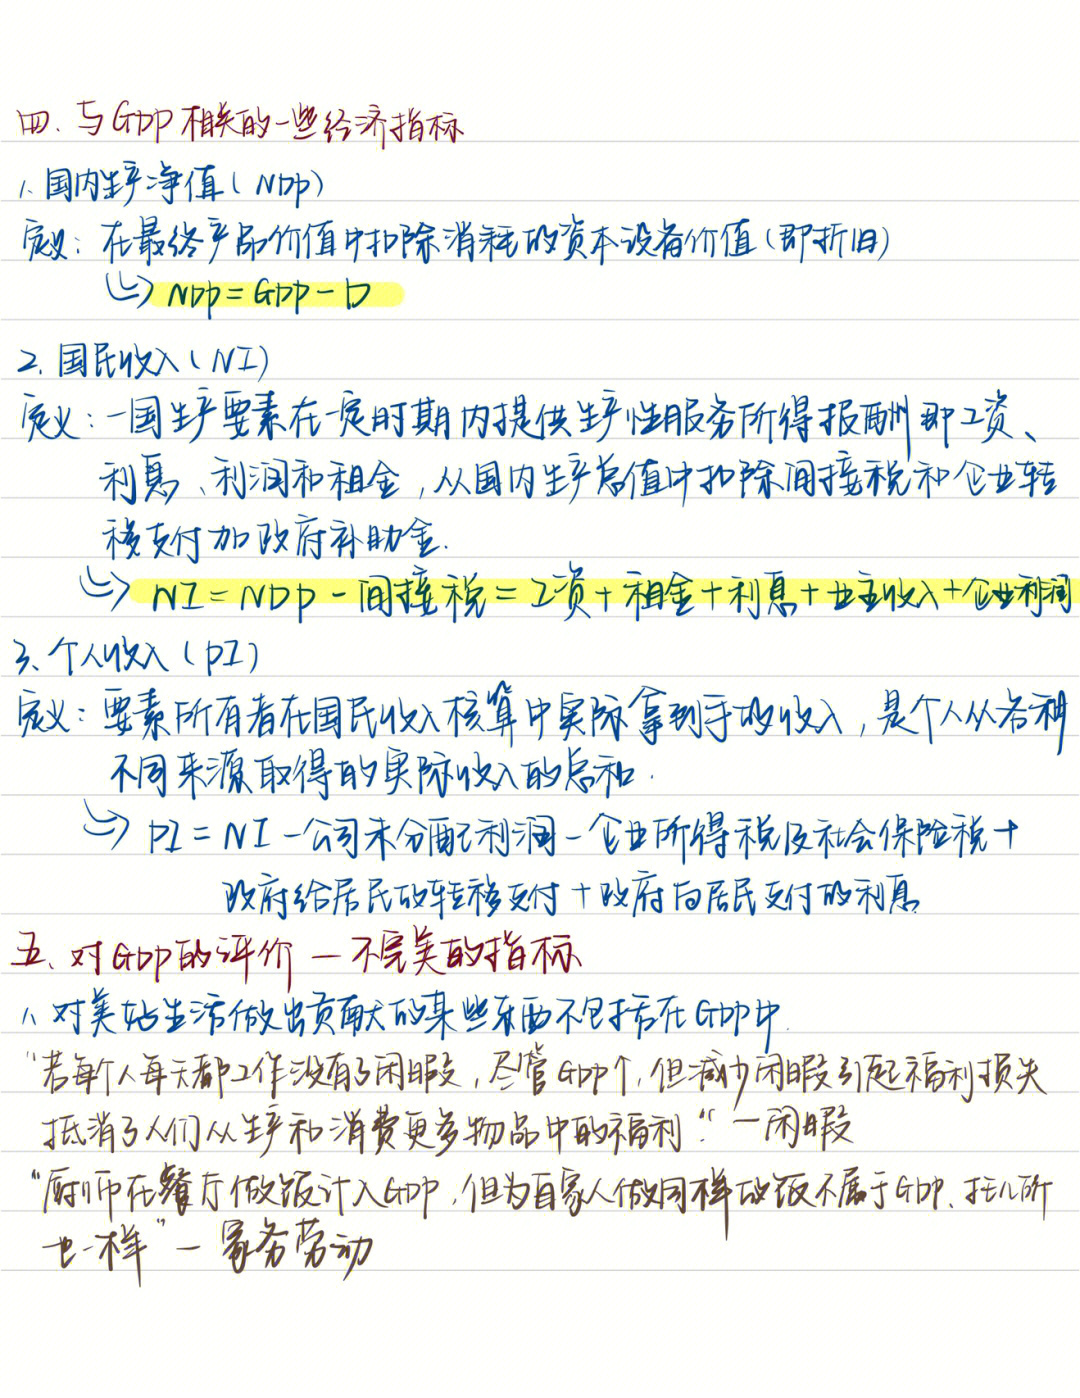 四、与GDP相关的一些经济指标
1、国内生产净值(NDP)
定义：在最终产品价值中扣除消耗的资本设备价值(即折旧)
↳ NDP=GDP-D
2、国民收入(NI)
定义：一国生产要素在一定时期内提供生产性服务所得报酬即工资、
利息、利润和租金,从国内生产总值中扣除间接税和企业转
移支付加政府补助金.
↳ NI=NDP-间接税=工资+租金+利息+业主收入+企业利润
3、个人收入(PI)
定义：要素所有者在国民收入核算中实际拿到手的收入,是个人从各种
不同来源取得的实际收入的总和.
↳ PI=NI-公司未分配利润-企业所得税及社会保险税+
政府给居民的转移支付+政府向居民支付的利息
五、对GDP的评价—不完美的指标
1、对美好生活做出贡献大的某些东西不包括在GDP中.
"若每个人每天都工作没有了闲暇,尽管GDP↑,但减少闲暇引起福利损失
抵消了人们从生产和消费更多物品中的福利."—闲暇
"厨师在餐厅做饭计入GDP,但为自家人做同样的饭不属于GDP、托儿所
也一样"—家务劳动